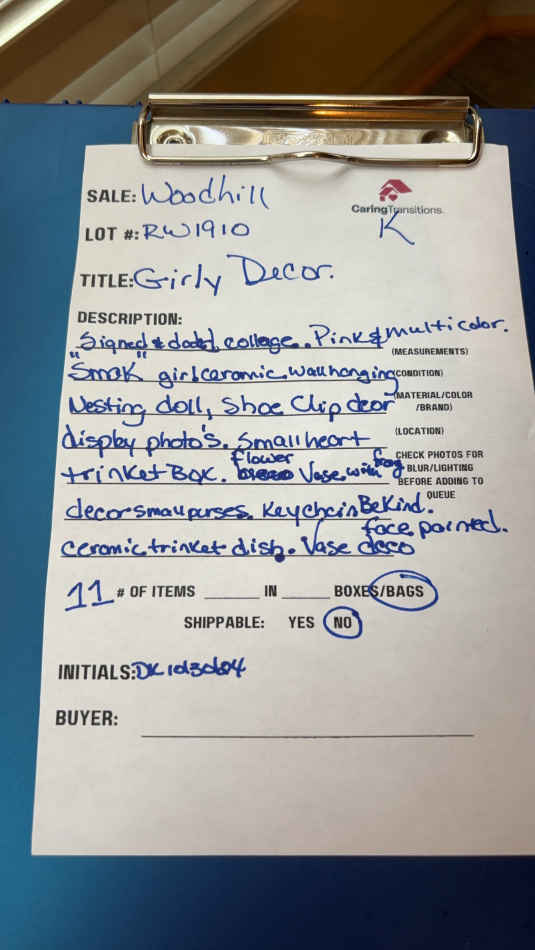 SALE: Woodhill
CaringTransitions.
K
LOT #: RW1910
TITLE: Girly Decor.
DESCRIPTION:
Signed & dated, collage. Pink & multi color.
(MEASUREMENTS)
"Smok" girl ceramic. wall hanging
(CONDITION)
Nesting doll, Shoe Clip decor
(MATERIAL/COLOR
/BRAND)
display photo's. Small heart
(LOCATION)
trinket Box. flower Vase. with frog
CHECK PHOTOS FOR
BLUR/LIGHTING
BEFORE ADDING TO
QUEUE
decor small purses. Keychain BeKind.
ceramic trinket dish. Vase deco face painted.
11 # OF ITEMS ______ IN ______ BOXES/BAGS
SHIPPABLE: YES NO
INITIALS: DK
BUYER: